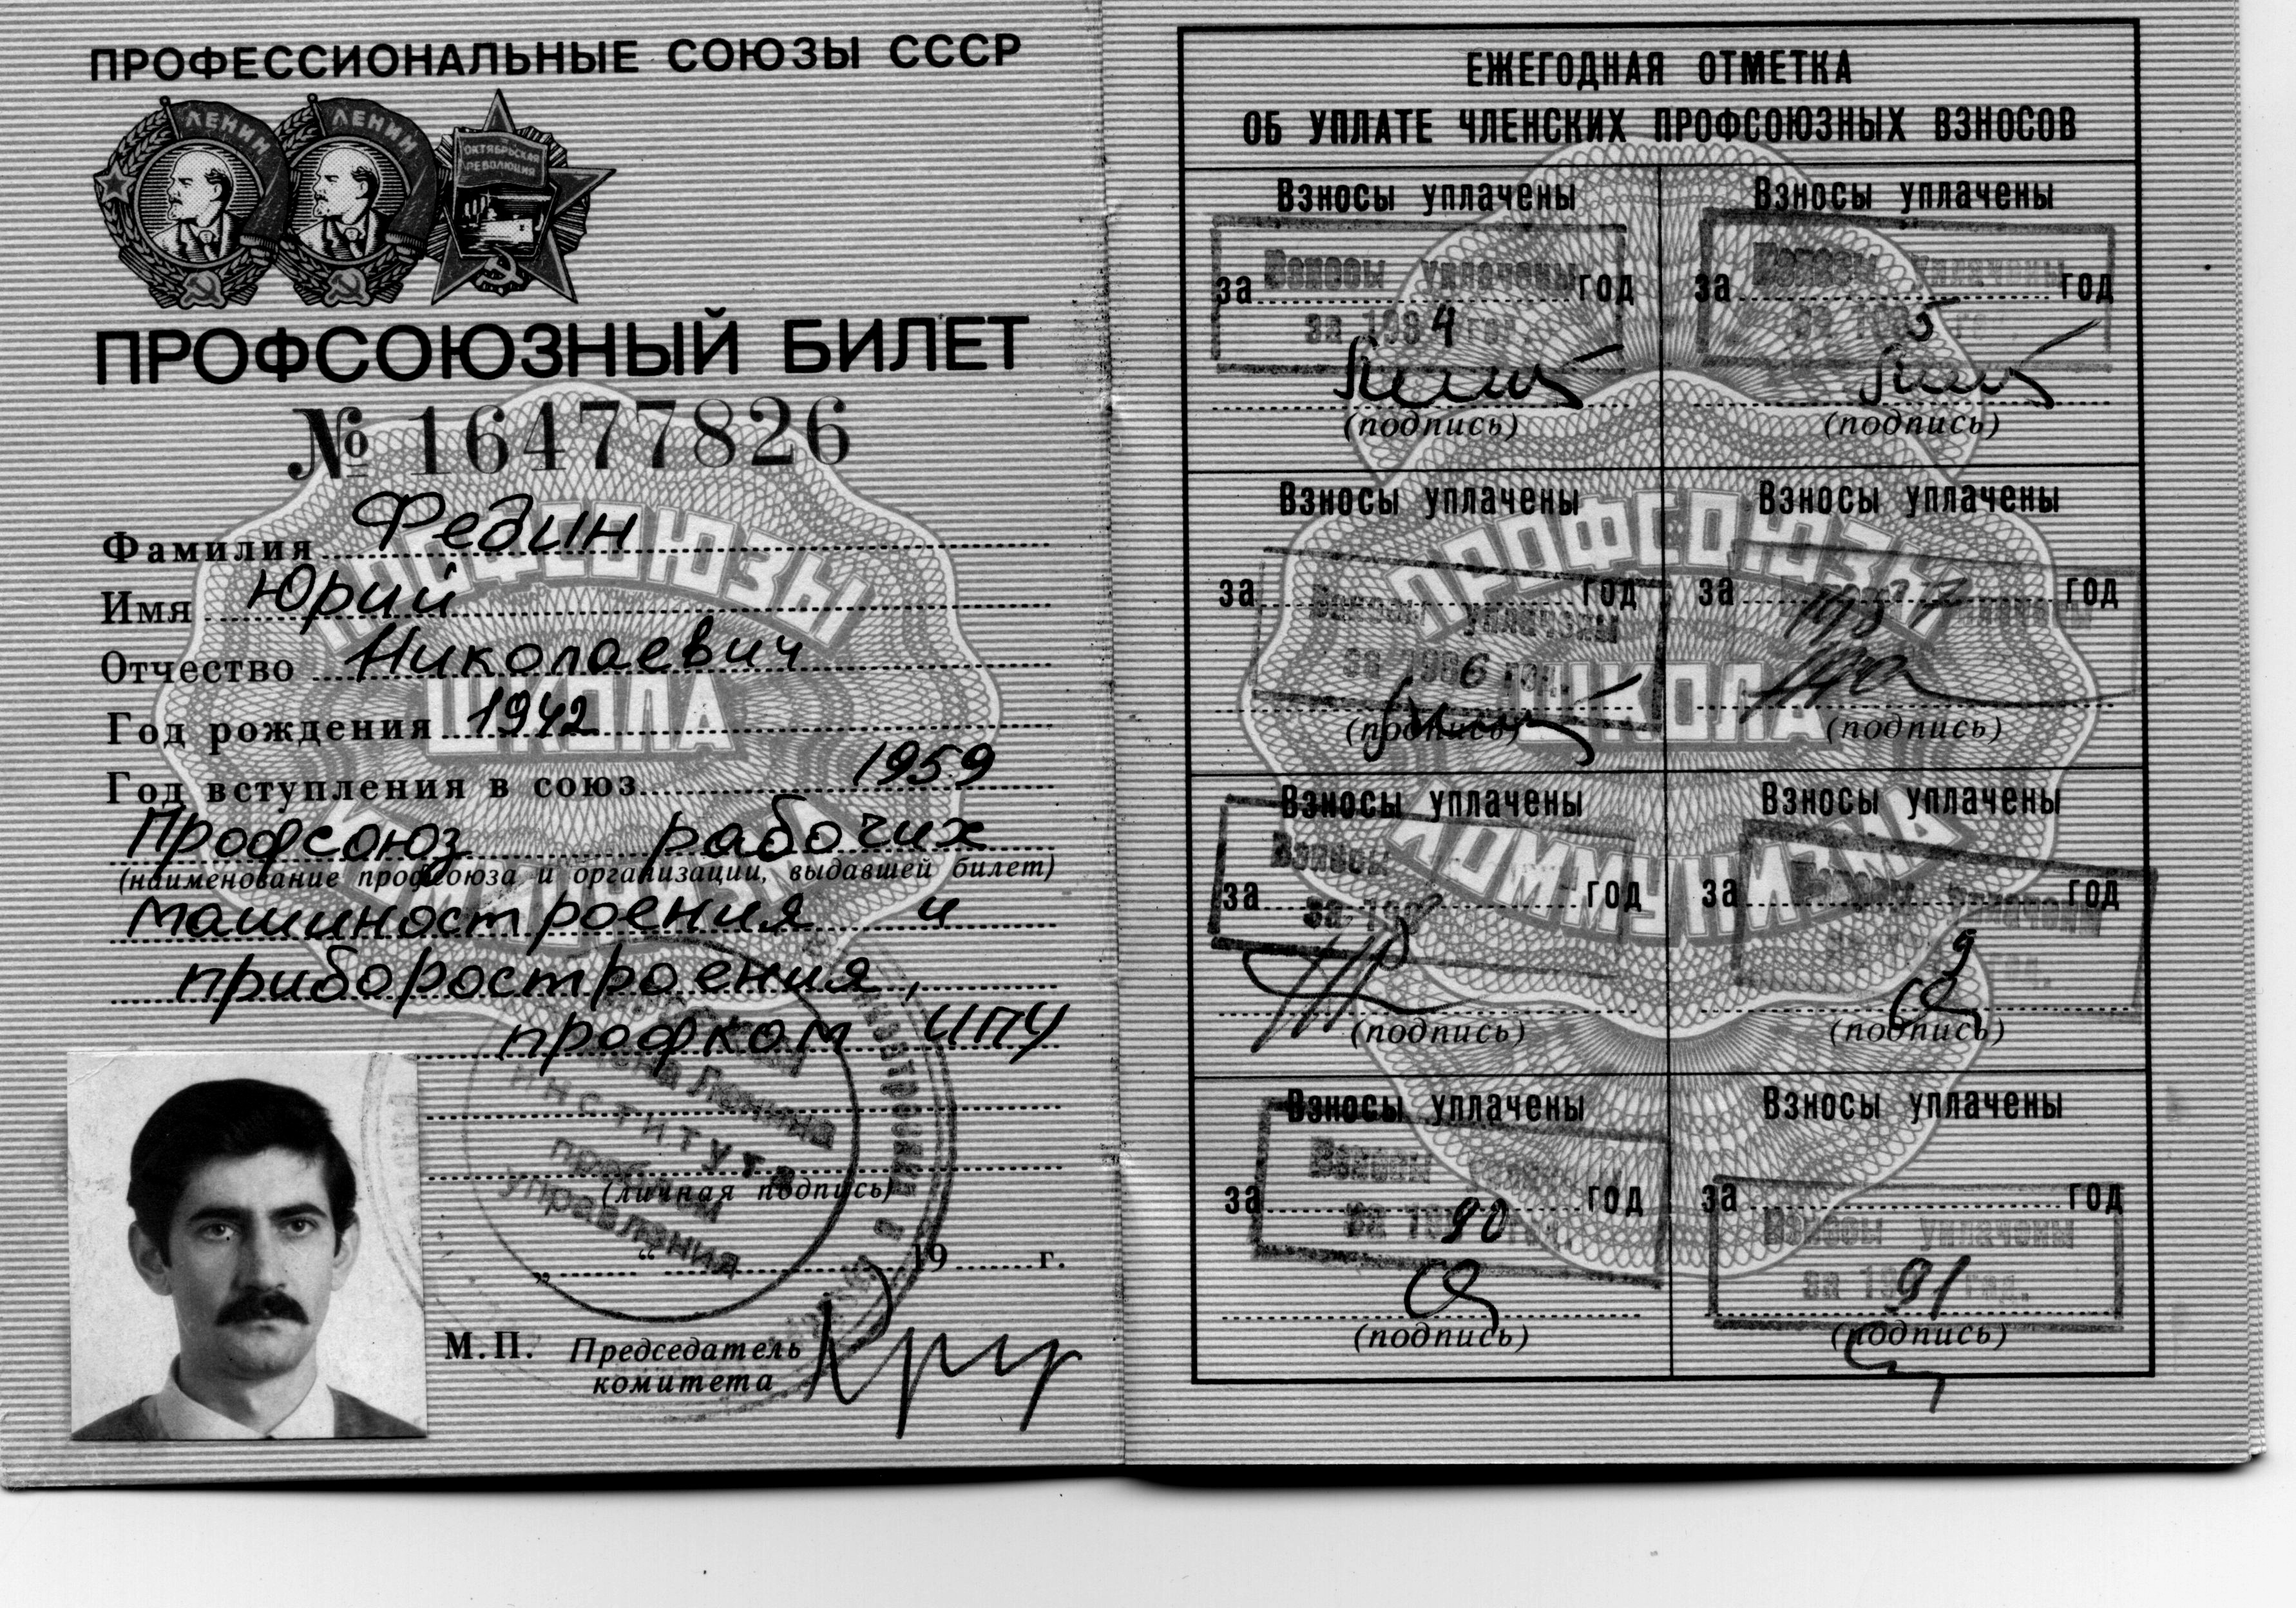 ПРОФЕССИОНАЛЬНЫЕ СОЮЗЫ СССР
ЛЕНИН
ЛЕНИН
ОКТЯБРЬСКАЯ
РЕВОЛЮЦИЯ
ПРОФСОЮЗНЫЙ БИЛЕТ
№ 16477826
ПРОФСОЮЗЫ
ШКОЛА
Фамилия Федин
Имя Юрий
Отчество Николаевич
Год рождения 1942
Год вступления в союз 1959
Профсоюз рабочих
(наименование профсоюза и организации, выдавшей билет)
машиностроения и
приборостроения,
профком ИПУ
Ленина
института
проблем
управления
(личная подпись)
„ “ 19 г.
М.П. Председатель
комитета
ЕЖЕГОДНАЯ ОТМЕТКА
ОБ УПЛАТЕ ЧЛЕНСКИХ ПРОФСОЮЗНЫХ ВЗНОСОВ
Взносы уплачены
за год
Взносы уплачены
за 1984 год
(подпись)
Взносы уплачены
за год
Взносы уплачены
за 1985 год
(подпись)
ПРОФСОЮЗЫ
ШКОЛА
КОММУНИЗМА
Взносы уплачены
за год
Взносы уплачены
за 1986 год.
(подпись)
Взносы уплачены
за год
(подпись)
Взносы уплачены
за год
Взносы
(подпись)
Взносы уплачены
за год
Взносы уплачены
9 год.
(подпись)
Взносы уплачены
за год
Взносы
за 1990 год.
(подпись)
Взносы уплачены
за год
Взносы уплачены
за 1991 год.
(подпись)